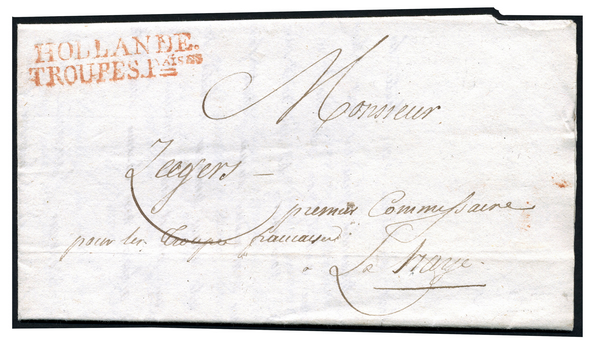 HOLLANDE.
TROUPES.Fçaises
Monsieur
Zeegers —
premier Commissaire
pour les troupes francaises
à La haye.